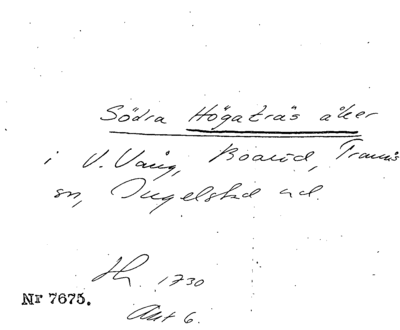 Södra Högaträs åker
i V. Vång, Boarid, Tranås
sn, Ingelstad hd.
1730
Nr 7675.
Akt 6.